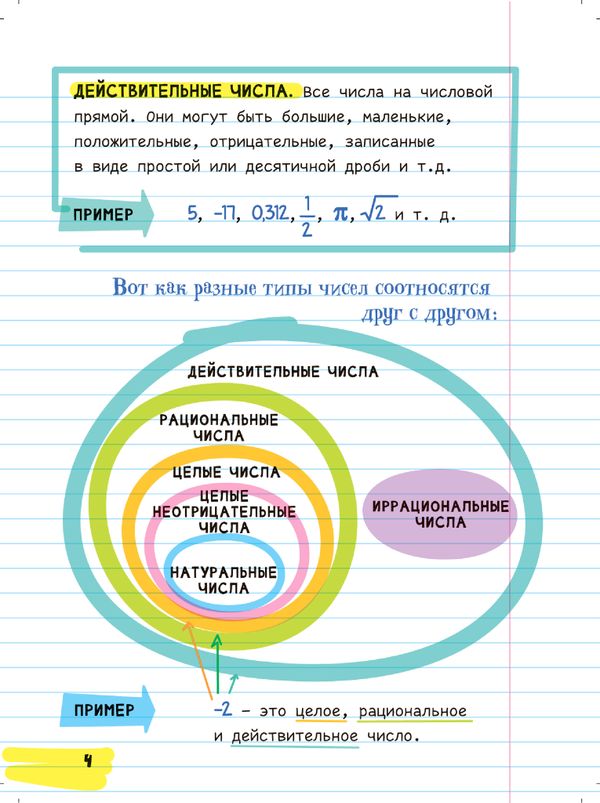 ДЕЙСТВИТЕЛЬНЫЕ ЧИСЛА. Все числа на числовой
прямой. Они могут быть большие, маленькие,
положительные, отрицательные, записанные
в виде простой или десятичной дроби и т.д.
ПРИМЕР 5, -17, 0,312, 1/2, π, √2 и т. д.
Вот как разные типы чисел соотносятся
друг с другом:
ДЕЙСТВИТЕЛЬНЫЕ ЧИСЛА
РАЦИОНАЛЬНЫЕ
ЧИСЛА
ЦЕЛЫЕ ЧИСЛА
ЦЕЛЫЕ
НЕОТРИЦАТЕЛЬНЫЕ
ЧИСЛА
НАТУРАЛЬНЫЕ
ЧИСЛА
ИРРАЦИОНАЛЬНЫЕ
ЧИСЛА
ПРИМЕР -2 – это целое, рациональное
и действительное число.
4